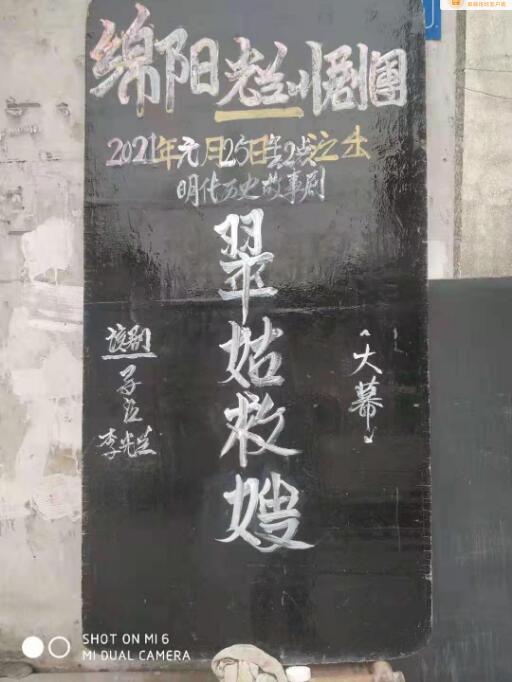 绵阳光兰川剧團
2021年元月25日至2点演出
明代历史故事剧
翠姑救嫂
大幕
该剧
李光兰
SHOT ON MI 6
MI DUAL CAMERA